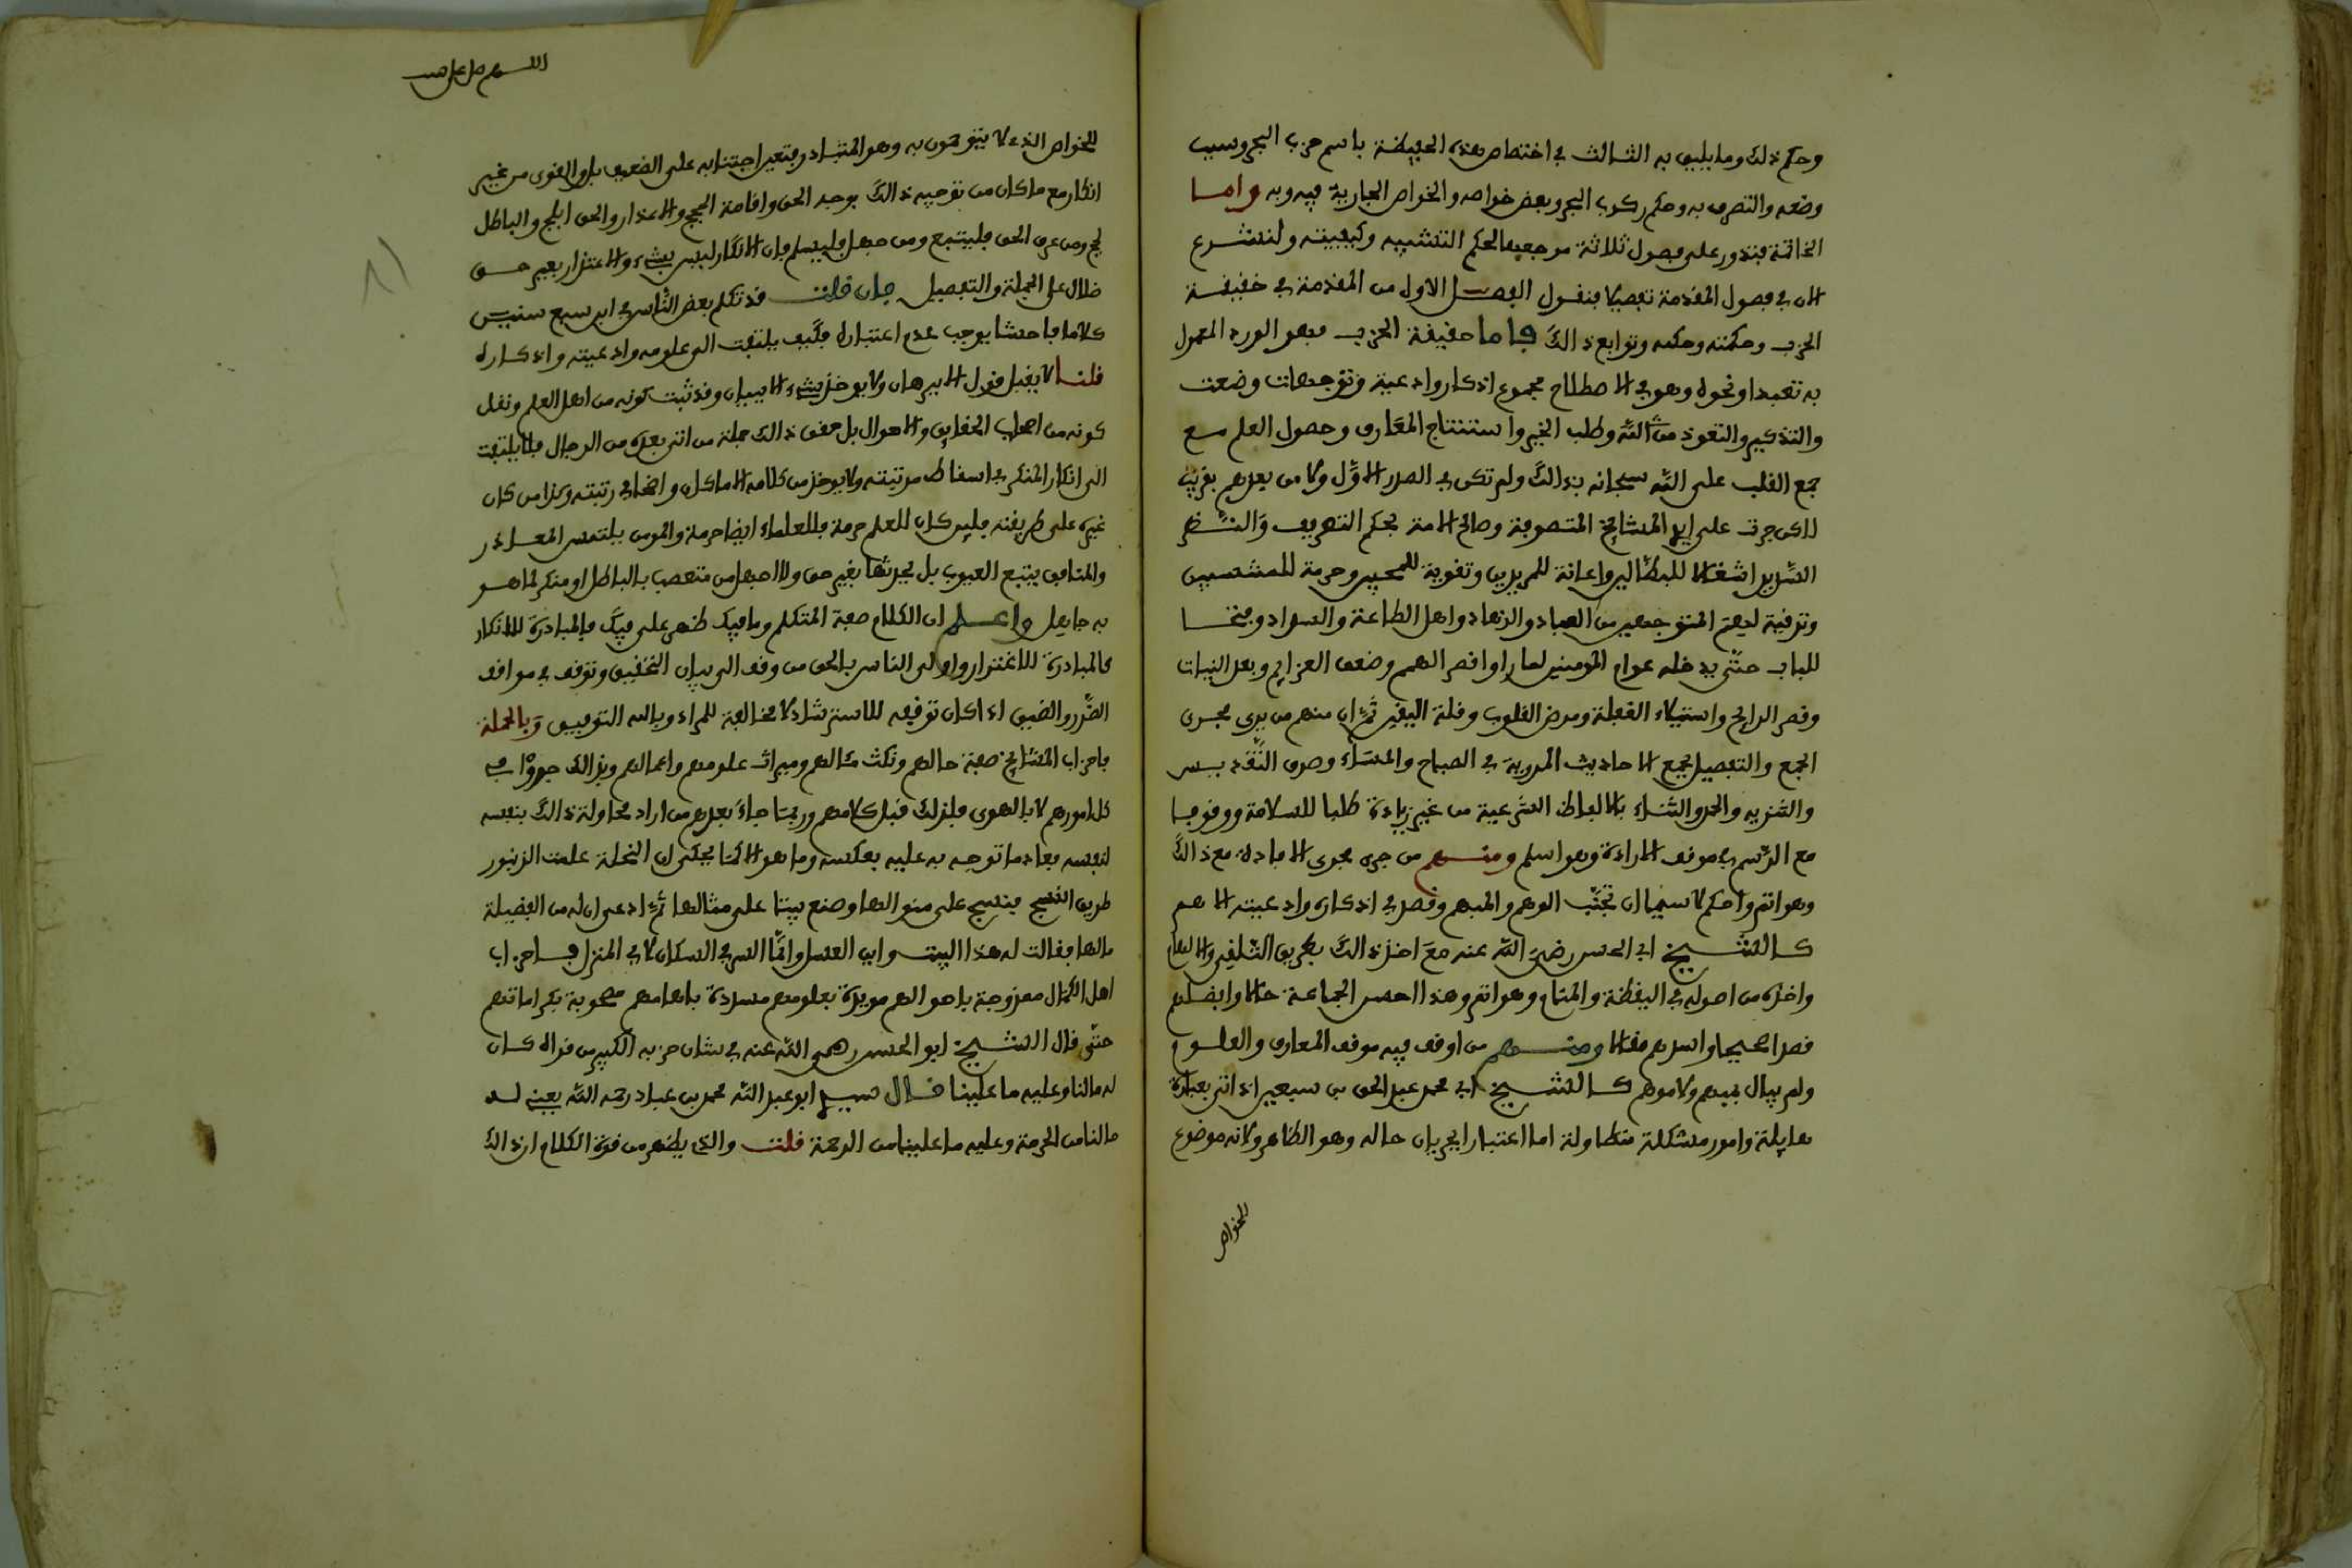 وحكم ذلك وما يليق به الثالث في اختصاص هذه الحفيظة باسم حزب البحر وسبب
وضعه والتصرف به وحكم ركوب البحر وبعض خواصه والخواص الجارية فيه وبه واما
الخاتمة فتدور على فصول ثلاثة مرجعها لحكم التشبيه وكيفيته ولنشرع
الان في فصول المقدمة تفصيلا فنقول الفصل الاول من المقدمة في حقيقة
الحزب وحكمته وحكمه وتوابع ذالك فاما حقيقة الحزب فهو الورد المعمول
به تعبدا ونحوه وهو في الاصطلاح مجموع اذكار وادعية وتوجهات وضعت
والتذكير والتعوذ من الشر وطلب الخير واستنتاج المعارف وحصول العلم مع
جمع القلب على الله سبحانه بذالك ولم تكن في الصدر الاول ولا من بعدهم بقريب
لاكن جرت على ايد المشايخ المتصوفة وصالح الامة بحكم التصريف والنظر
السديد اشغالا للبطالين واعانة للمريدين وتقوية للمحبين وحرمة للمنتسبين
وترقية لهمم المتوجهين من العباد والزهاد واهل الطاعة والسداد وفتحا
للباب حتى يدخله عوام المومنين لما راوا قصر الهمم وضعف العزايم وبعد النيات
وقصر الرايح واستيلاء الغفلة ومرض القلوب وقلة اليقين ثم ان منهم من يرى مجرى
الجمع والتفصيل بجمع الاحاديث المروية في الصباح والمساء وصرف التقديس
والتنزيه والحمد والثناء بالالفاظ الشرعية من غير زيادة طلبا للسلامة ووقوفا
مع الرسم في موقف الارادة وهو اسلم ومنهم من جرى مجرى الافادة مع ذالك
وهو اتم واحكم لا سيما ان تجنب الوهم والمبهم وقصر في اذكاره وادعيته الاهم
كالشيخ ابي الحسن رضي الله عنه مع اخذ ذالك بطريق التلقين والالهام
واخذه من اصوله في اليقظة والمنام وهو اتم وهذا احسن الجماعة حالا وافضلهم
قصدا صحيحا واسدهم مقالا ومنهم من اوقف فيه موقف المعارف والعلوم
ولم يبال بمبهم ولا موهم كالشيخ ابي محمد عبد الحق بن سبعين اذ اتى بعبارة
هايلة وامور مشكلة متطاولة اما اعتبارا بجريان حاله وهو الظاهر ولانه موضوع
للخواص
اللهم صل على
للخواص الذي لا يتوهمون به وهو المتبادر فتعين اجتنابه على الضعيف بل والقوى من غير
انكار مع ما كان من توجيه ذالك بوجه الحق واقامة الحجج والاعذار والحق ابلج والباطل
لجلج ومن عرف الحق فليتبع ومن جهل فليسلم فان الانكار ليس بشيء والاعتذار بغير حق
ضلال على الجملة والتفصيل فان قلت قد تكلم بعض الناس في ابن سبعين
كلاما فاحشا يوجب عدم اعتباره فكيف يلتفت الى علومه وادعيته واذكاره
قلنا لا يقبل قول الا ببرهان ولا يوخذ بشيء الا ببيان وقد ثبت كونه من اهل العلم ونقل
كونه من اصحاب الحقايق والاحوال بل حقق ذالك جملة من اتى بعده من الرجال فلا يلتفت
الى انكار المنكر في اسقاط مرتبته ولا يوخذ من كلامه الا ما كان واضحا في رتبته وكذا من كان
غيره على طريقته فلين كان للعلم حرمة فللعلماء ايضا حرمة والمومن يلتمس المعاذر
والمنافق يتبع العيوب بل يحدثها بغير حق ولا اجهل من متعصب بالباطل او منكر لما هو
به جاهل واعلم ان الكلام صفة المتكلم وما فيك ظهر على فيك فالمبادرة للانكار
كالمبادرة للاغترار واولى الناس بالحق من وقف الى بيان التحقيق وتوقف في مواقف
الضرر والضيق اذا كان توقيفه للاسترشاد لا مخالفة للمراء وبالله التوفيق وبالجملة
فاحزاب المشايخ صفة حالهم ونكت مقالهم وميراث علومهم واعمالهم وبذالك جروا في
كل امورهم لا بالهوى فلذلك قبل كلامهم وربما جاء بعدهم من اراد محاولة ذالك بنفسه
لنفسه فعاد ما توجه به عليه بعكسه وما هو الا كما يحكى ان النحلة علمت الزنبور
طريق النسج فنسج على منوالها وصنع بيتا على مثالها ثم ادعى ان له من الفضيلة
مالها فقالت له هذا البيت واين العسل وانما السر في السكان لا في المنزل فاحزاب
اهل الكمال ممزوجة باحوالهم مويدة بعلومهم مسددة بالهامهم مصحوبة بكراماتهم
حتى قال الشيخ ابو الحسن رضي الله عنه في شان حزبه الكبير من قراه كان
له مالنا وعليه ما علينا قال سيدي ابو عبد الله محمد بن عباد رحمه الله يعني له
مالنا من الحرمة وعليه ما علينا من الرحمة قلت والذي يظهر من قوة الكلام ان ذالك